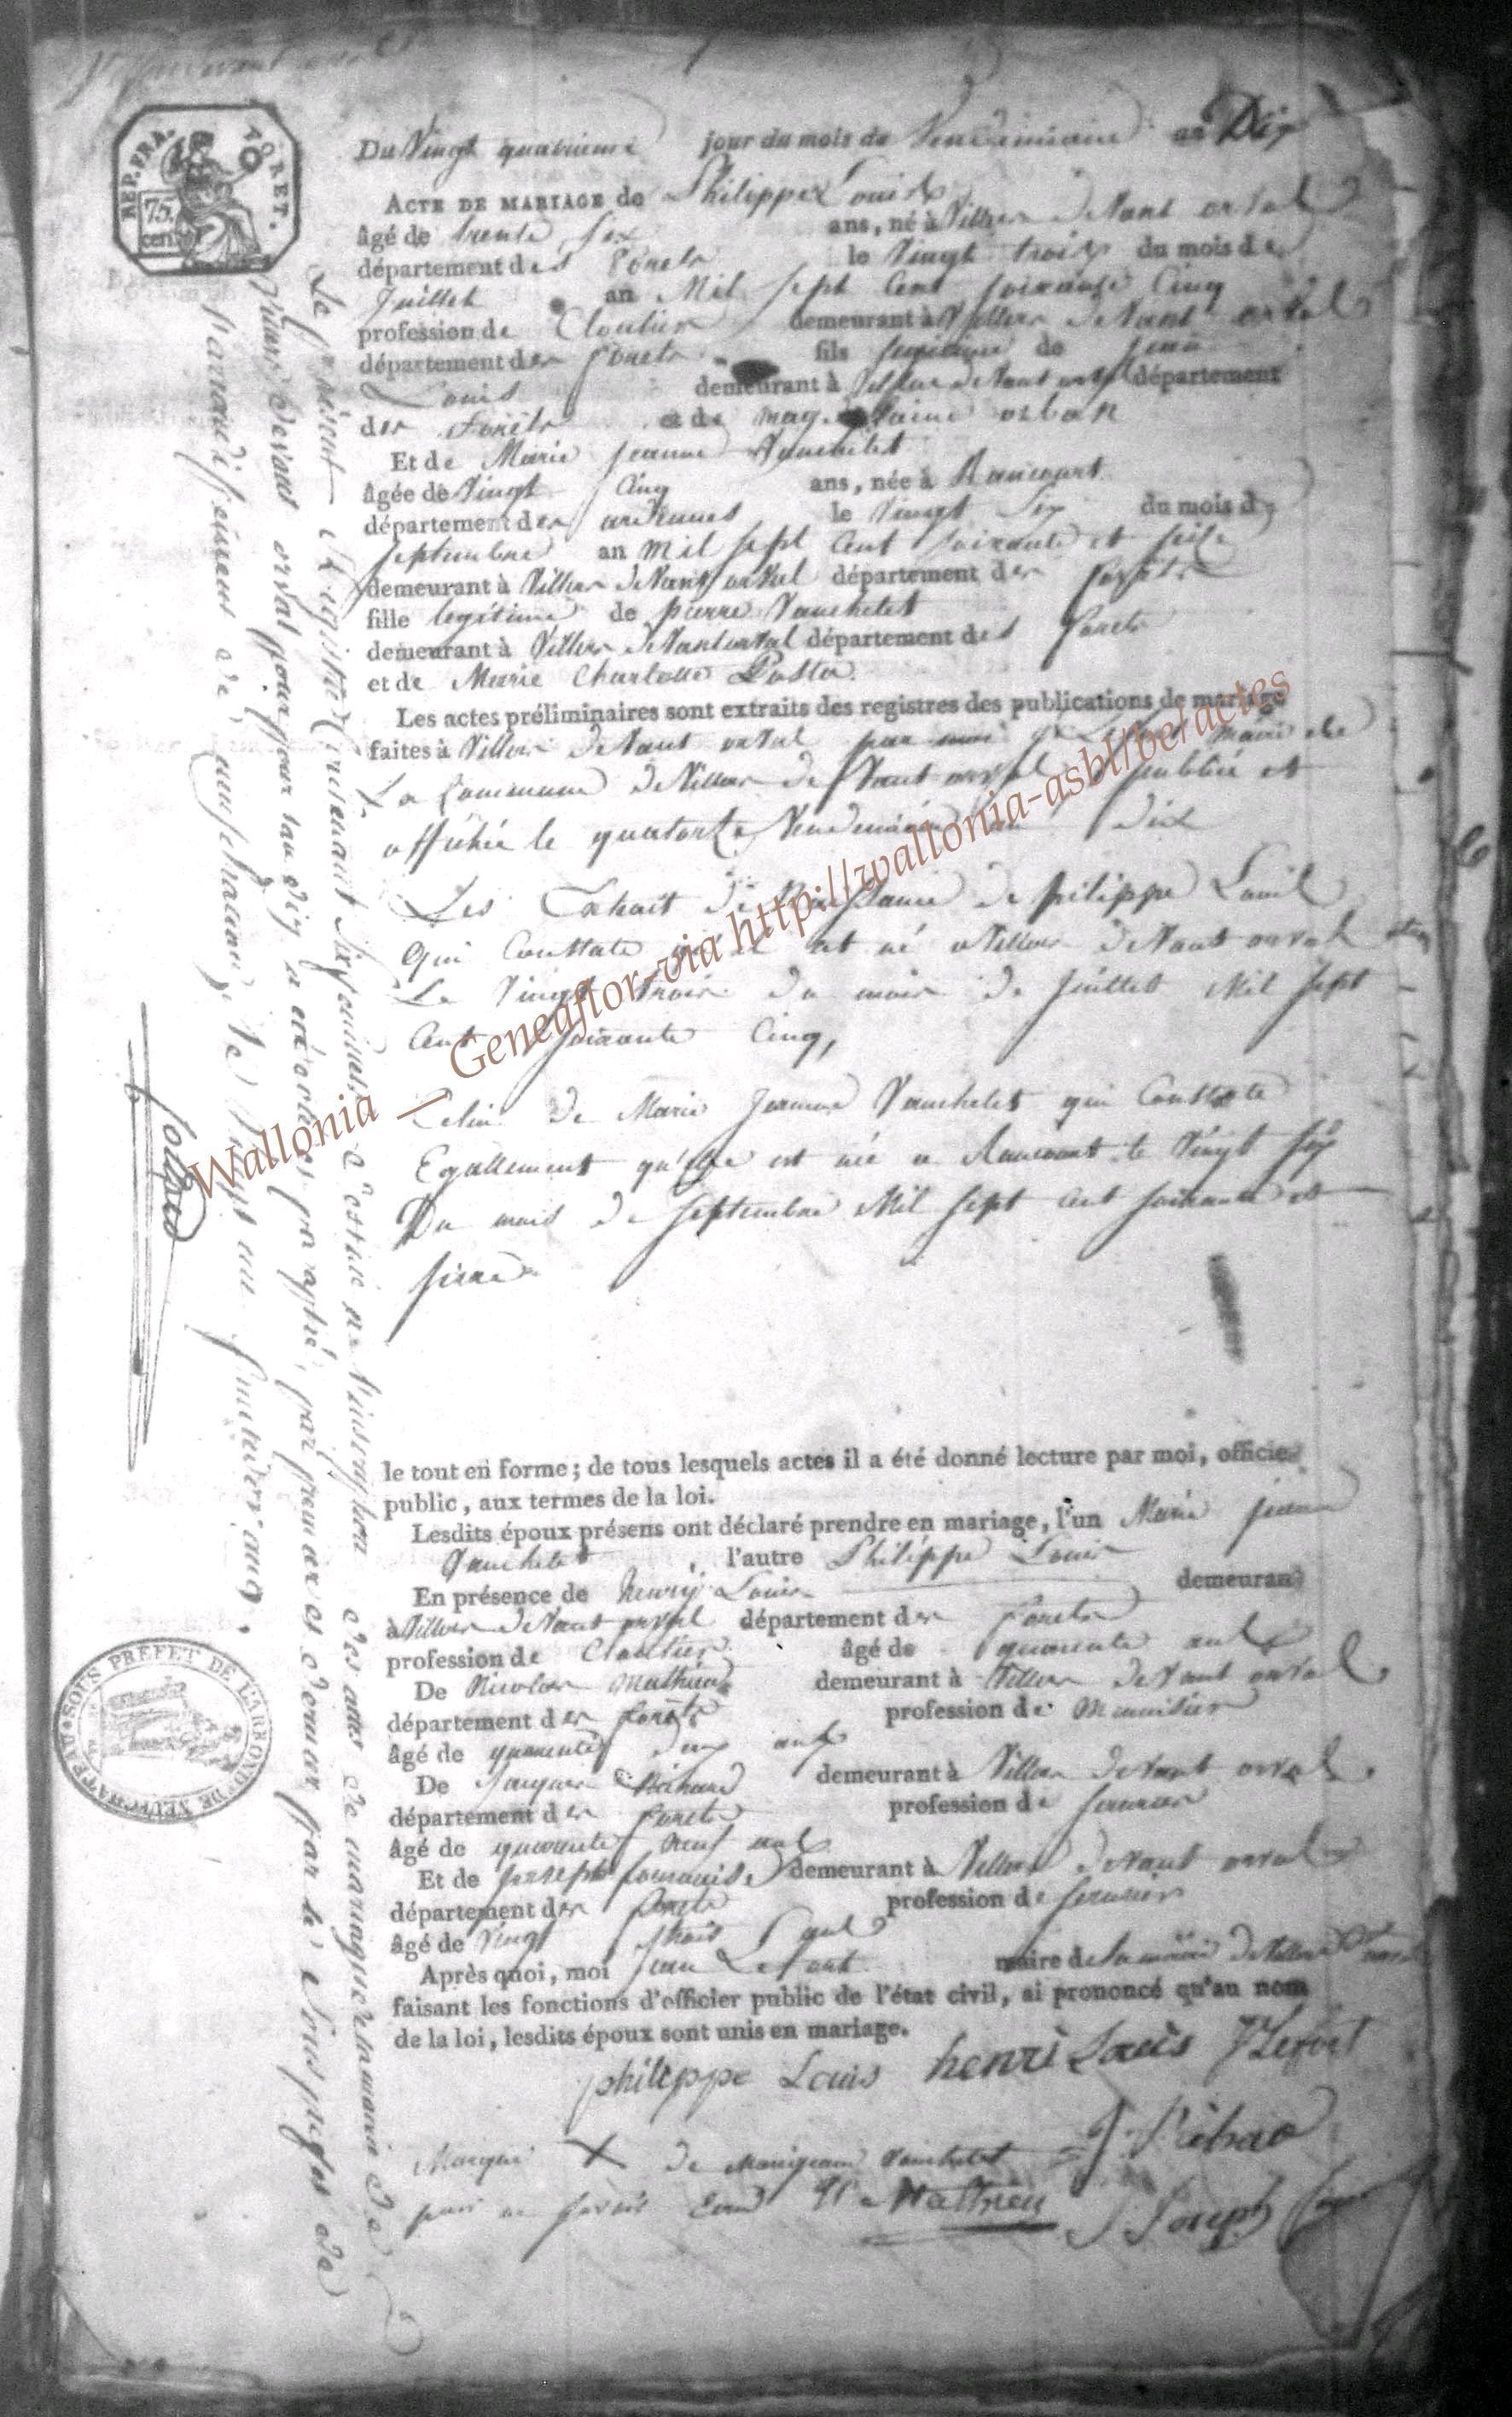 REP. FRA.
75. cent.
RET.
Du Vingt quatrieme jour du mois de Vendémiaire an Dix
ACTE DE MARIAGE de Philippe Louis
âgé de trente six ans, né à Villers devant orval
département des Forets le Vingt trois du mois de
Juillet an Mil sept Cent soixante Cinq
profession de Cloutier demeurant à Villers devant orval
département des Forets fils legitime de Jean
Louis demeurant à Villers devant orval département
des Forêts et de orban
Et de Marie Jeanne Vauchelet
âgée de Vingt Cinq ans, née à Raucourt
département des ardennes le Vingt Six du mois de
Septembre an mil sept Cent soixante et seize
demeurant à Villers devant orval département des forets
fille legitime de pierre Vauchelet
demeurant à Villers devant orval département des forets
et de Marie Charlotte
Les actes préliminaires sont extraits des registres des publications de mariage
faites à Villers devant orval par moi maire de
La Commune de Villers devant orval publiée et
affichée le quatorze Vendemiaire an dix
Les Extrait de Naissance de philippe Louis
qui Constate qu'il est né a Villers devant orval
Le Vingt trois du mois de Juillet Mil sept
Cent soixante Cinq,
Celui de Marie Jeanne Vauchelet qui Constate
Egallement qu'elle est née a Raucourt le Vingt six
Du mois de septembre Mil sept cent soixante et
seize
le tout en forme; de tous lesquels actes il a été donné lecture par moi, officier
public, aux termes de la loi.
Lesdits époux présens ont déclaré prendre en mariage, l'un Marie jeanne
Vauchelet, l'autre Philippe Louis
En présence de henry Louis demeurant
à Villers devant orval département des Forets
profession de Cloutier âgé de quarente ans
De Nicolas Mathieu demeurant à Villers devant orval
département des forets profession de
âgé de quarente deux ans
De Jacques demeurant à Villers devant orval
département des forets profession de
âgé de quarante neuf ans
Et de joseph demeurant à Villers devant orval
département des forets profession de
âgé de Vingt trois ans
Après quoi, moi jean Lefort maire de la mairie de Villers devant orval
faisant les fonctions d'officier public de l'état civil, ai prononcé qu'au nom
de la loi, lesdits époux sont unis en mariage.
philippe Louis henri Louis J Lefort
Marque X de Marijeanne Vauchelet
pour ne savoir Ecrire Mathieu J Joseph
Le présent Registre Contenant six feuillets, destiné a l'inscription des actes de mariage de la mairie de
Villers devant orval pour l'an dix a été coté et paraphé, par premier et dernier par le Sous prefet de
l'arrondissement de neufchateau, le
SOUS PREFET DE L'ARROND.T DE NEUFCHATEAU
Wallonia _ Geneaflor-via http://wallonia-asbl/be/actes